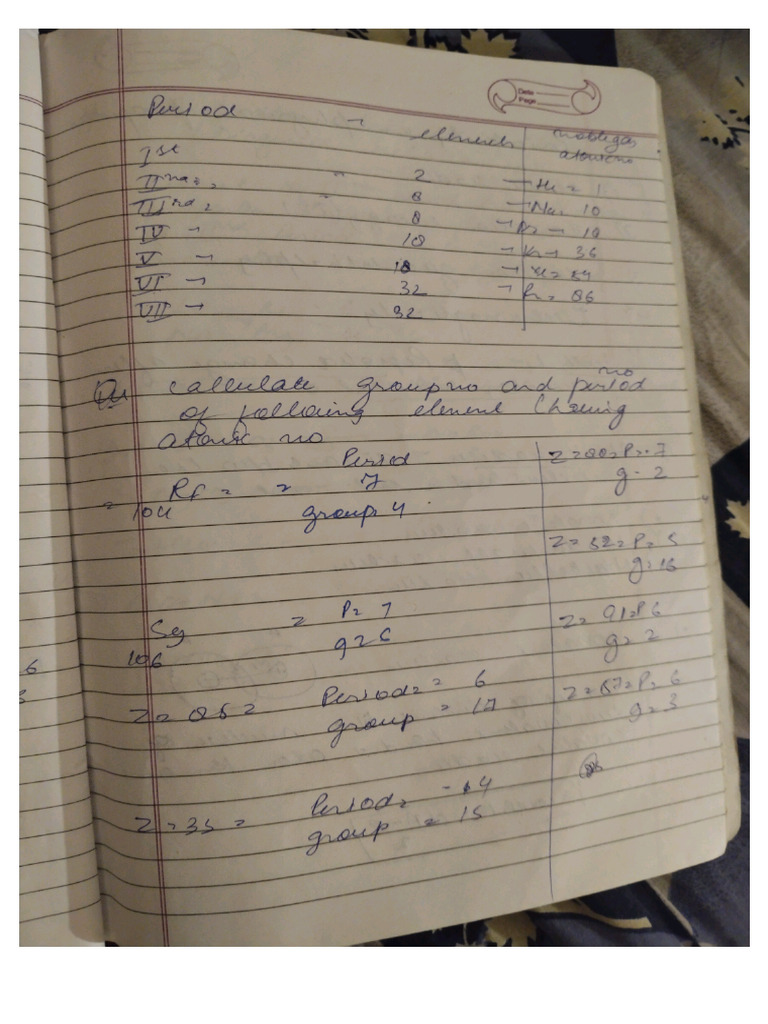 Date
Page
Period - elements noblegas
atomic no
Ist
IInd, - 2 - He = 1
IIIrd, - 8 - Ne = 10
IV - 8 - Ar - 18
V - 18 - Kr - 36
VI - 18 - Xe = 54
VII - 32 - Rn = 86
32
Qu calculate group no and period no
of following element (having
atomic no
Rf = = Period
7
104 group 4
Sg = P= 7
106 g=6
Z= 85 = Period = 6
group = 17
Z= 35 = Period = 4
group = 15
Z= 88= P= 7
g= 2
Z= 52= P= 5
g= 16
Z= 91=P6
g= 2
Z= 57= P= 6
g= 3
6